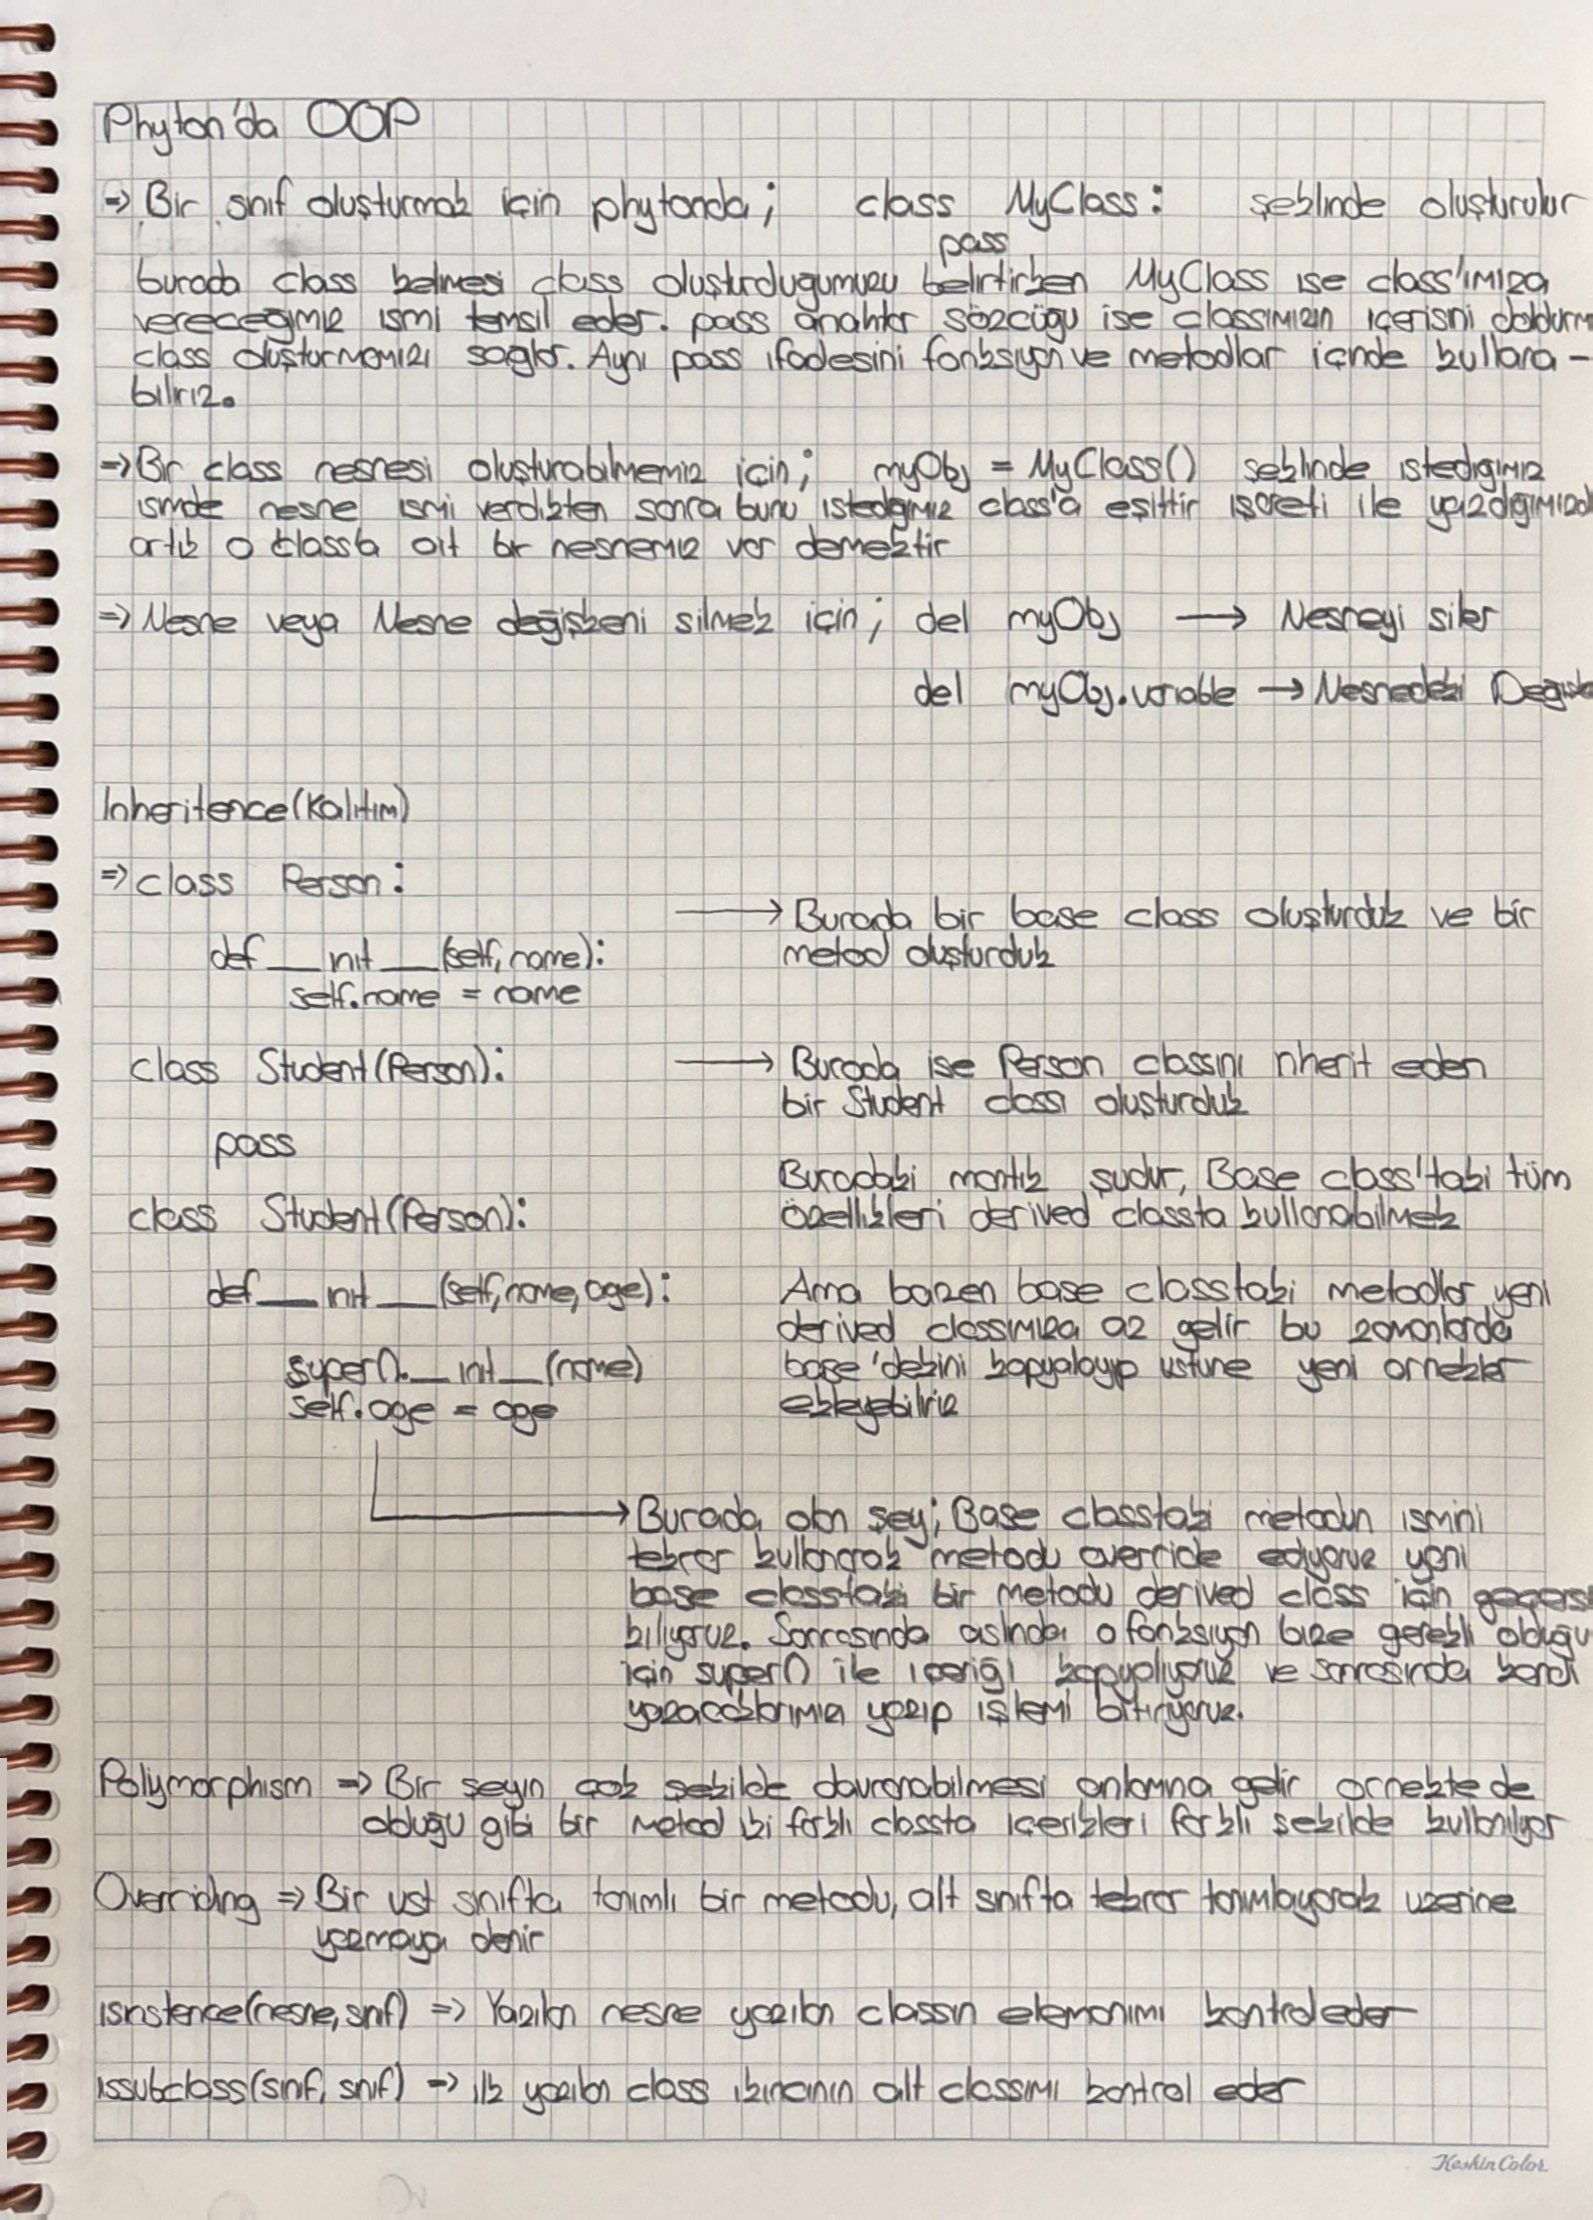 Phyton'da OOP
=> Bir sınıf oluşturmak için phytonda; class MyClass: şeklinde oluşturulur
pass
burada class kelimesi class oluşturduğumuzu belirtirken MyClass ise class'ımıza
vereceğimiz ismi temsil eder. pass anahtar sözcüğü ise classımızın içerisini doldurm
class oluşturmamızı sağlar. Aynı pass ifadesini fonksiyon ve metodlar içinde kullana-
biliriz.
=> Bir class nesnesi oluşturabilmemiz için; myObj = MyClass() şeklinde istediğimiz
isimde nesne ismi verdikten sonra bunu istediğimiz class'a eşittir işareti ile yazdığımızda
artık o class'a ait bir nesnemiz var demektir
=> Nesne veya Nesne değişkeni silmek için; del myObj → Nesneyi siler
del myObj.variable → Nesnedeki Değişke
Inheritence(Kalıtım)
=> class Person:
→ Burada bir base class oluşturduk ve bir
def __init__(self, name): metod oluşturduk
self.name = name
class Student(Person): → Burada ise Person classını inherit eden
bir Student classı oluşturduk
pass
Buradaki mantık şudur, Base class'taki tüm
class Student(Person): özellikleri derived classta kullanabilmek
def __init__(self, name, age): Ama bazen base classtaki metodlar yeni
derived classımıza az gelir bu zamanlarda
super().__init__(name) base'dekini kopyalayıp üstüne yeni örnekler
self.age = age ekleyebiliriz
→ Burada olan şey; Base classtaki metodun ismini
tekrar kullanarak metodu override ediyoruz yani
base classtaki bir metodu derived class için geçersi
kılıyoruz. Sonrasında aslında o fonksiyon bize gerekli olduğu
için super() ile içeriği kopyalıyoruz ve sonrasında kendi
yazacaklarımızı yazıp işlemi bitiriyoruz.
Polymorphism => Bir şeyin çok şekilde davranabilmesi anlamına gelir örnekte de
olduğu gibi bir metod iki farklı classta içerikleri farklı şekilde kullanılıyor
Overriding => Bir üst sınıfta tanımlı bir metodu, alt sınıfta tekrar tanımlayarak üzerine
yazmaya denir
isinstence(nesne, sınıf) => Yazılan nesne yazılan classın elemanımı kontrol eder
issubclass(sınıf, sınıf) => ilk yazılan class ikincinin alt classımı kontrol eder
Keskin Color